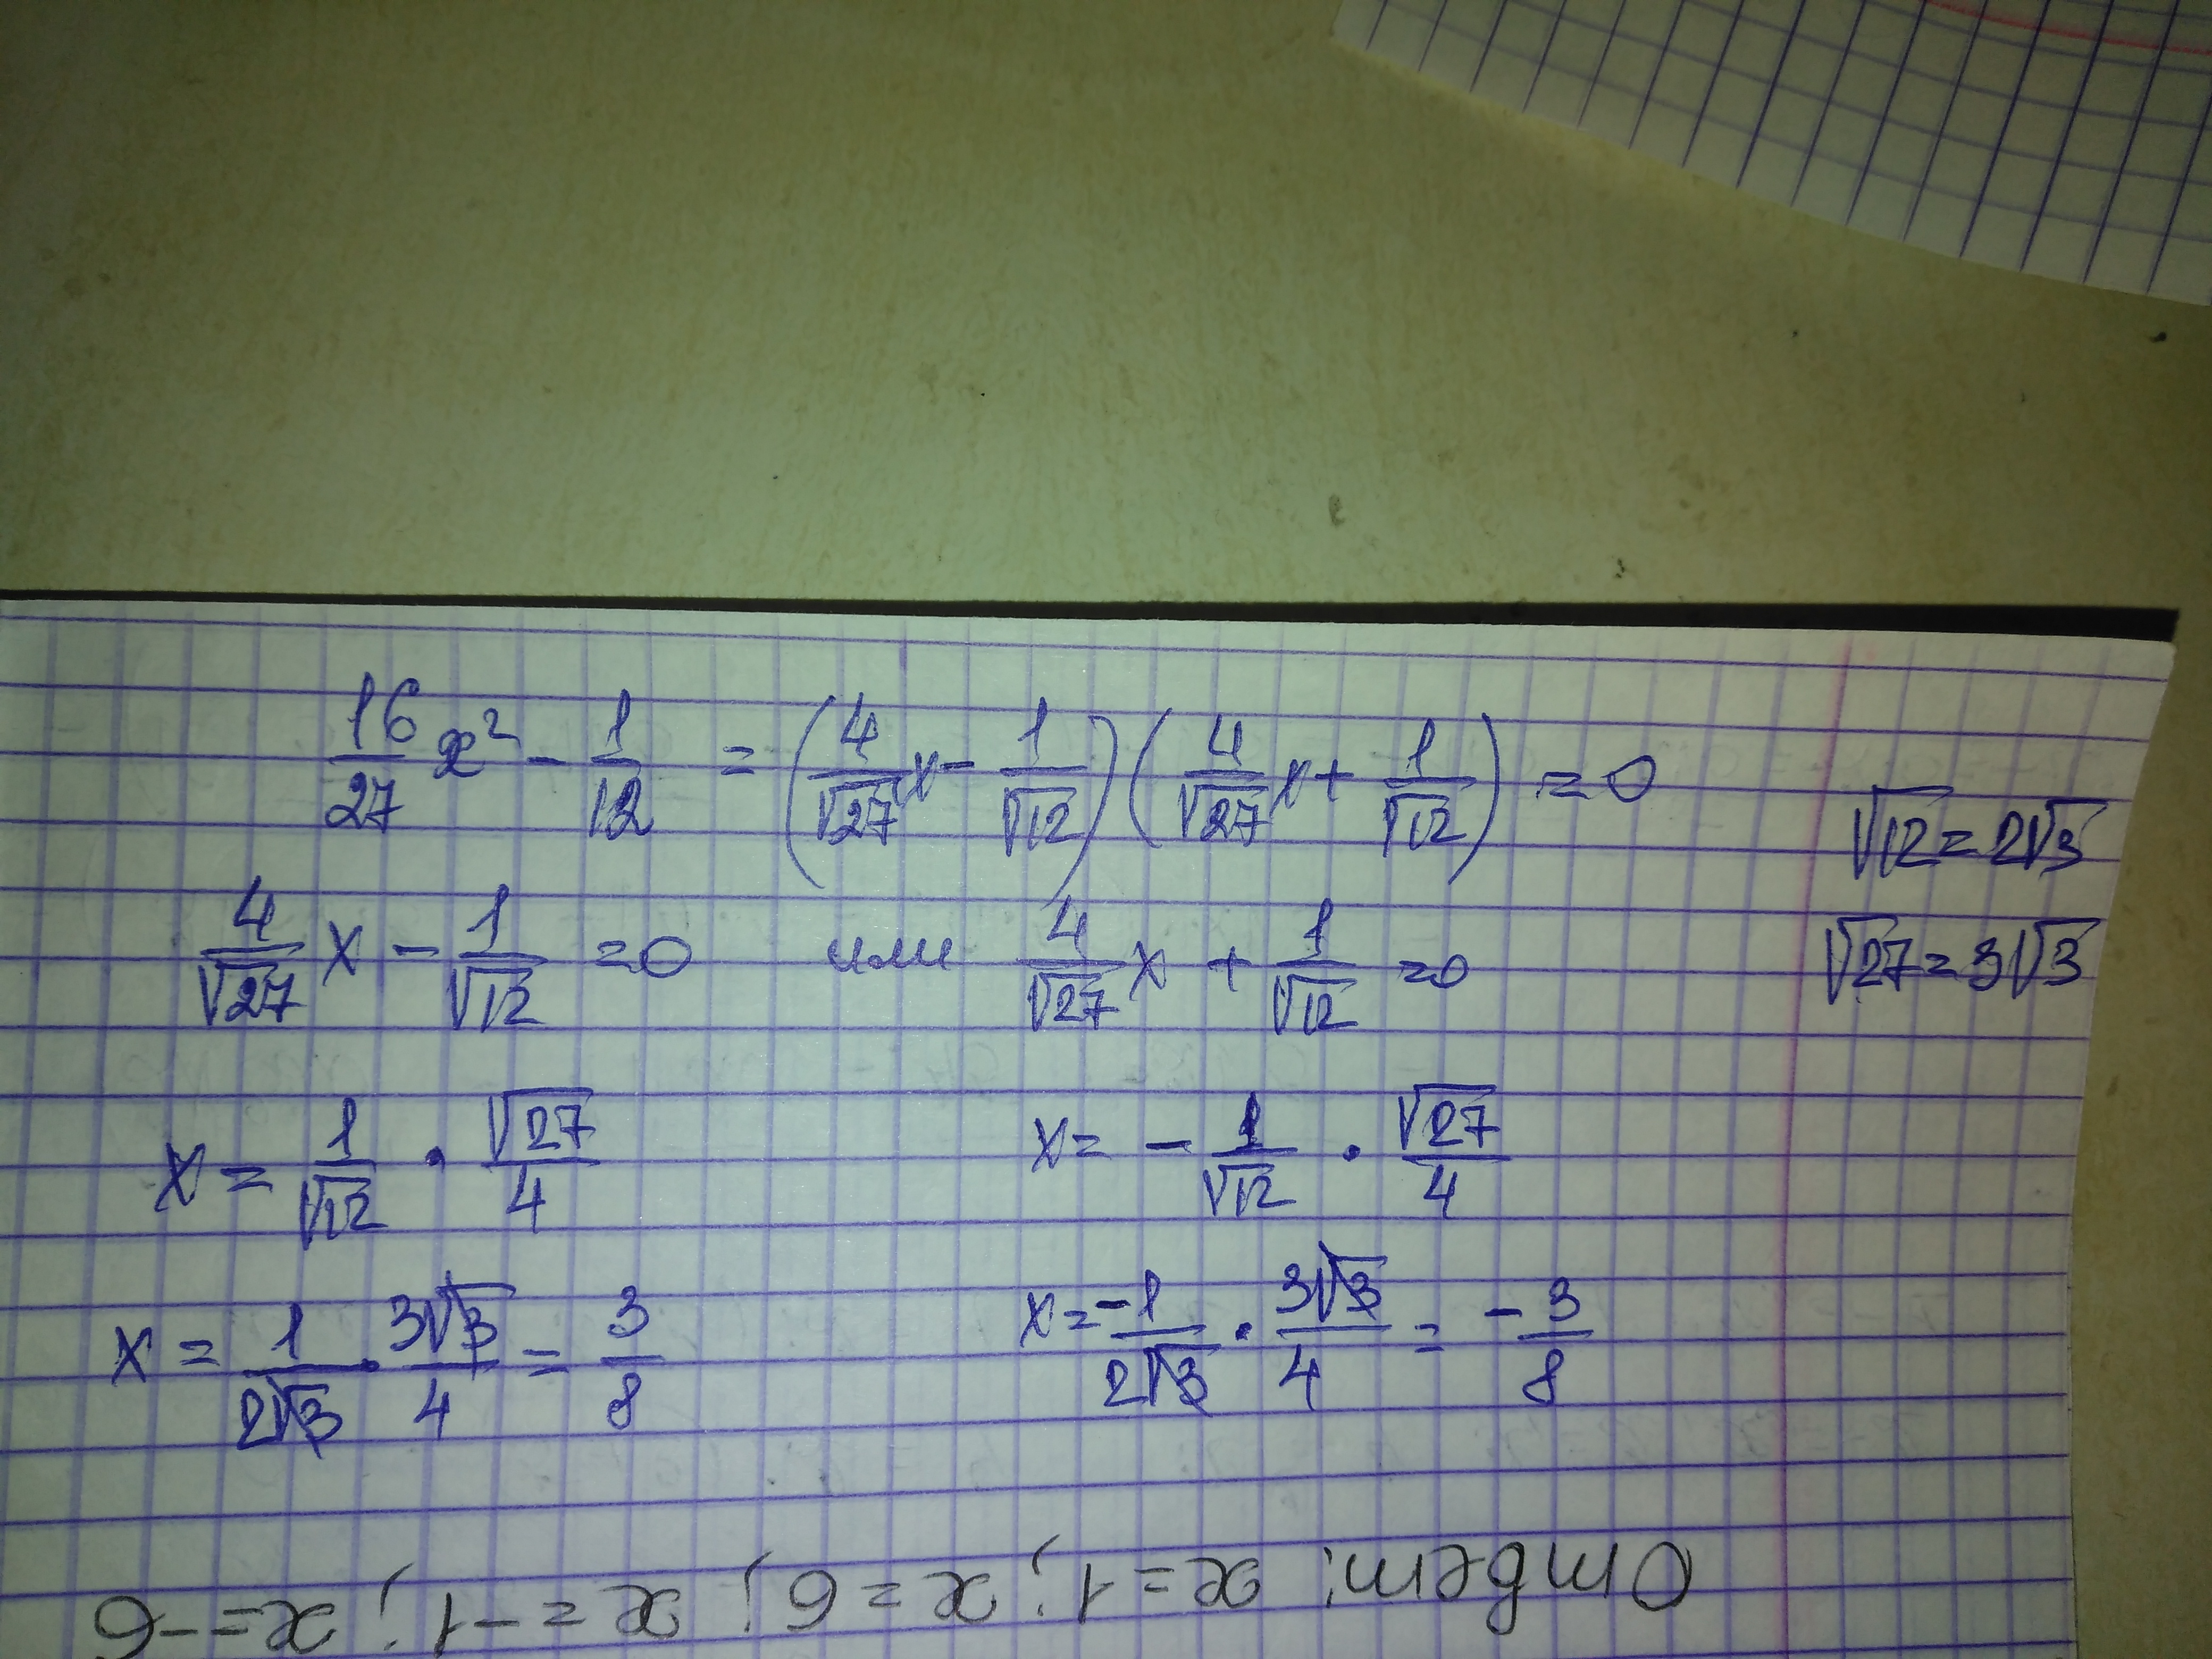 16/27 x² - 1/12 = (4/√27 x - 1/√12) (4/√27 x + 1/√12) = 0
√12 = 2√3
4/√27 x - 1/√12 = 0 или 4/√27 x + 1/√12 = 0
√27 = 3√3
x = 1/√12 · √27/4
x = - 1/√12 · √27/4
x = 1/2√3 · 3√3/4 = 3/8
x = -1/2√3 · 3√3/4 = - 3/8
Ответ: x = 1; x = 6; x = -1; x = -6